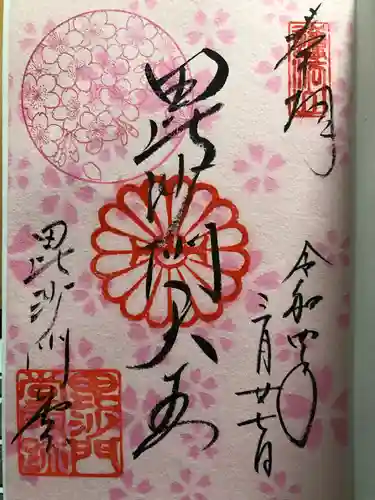 奉拝
令和四年
三月廿七日
毘沙門天王
毘沙門堂
毘沙門
堂跡